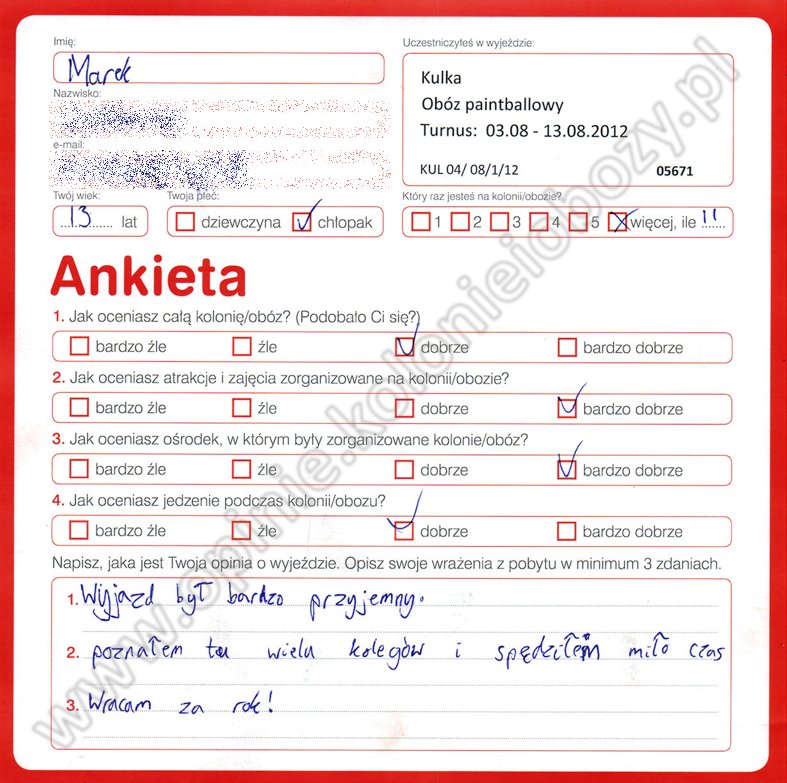 Imię:
Uczestniczyłeś w wyjeździe:
Marek
Kulka
Nazwisko:
Obóz paintballowy
Turnus: 03.08 - 13.08.2012
e-mail:
KUL 04/ 08/1/12 05671
Twój wiek: Twoja płeć: Który raz jesteś na kolonii/obozie?
13 lat dziewczyna chłopak 1 2 3 4 5 więcej, ile 11
Ankieta
1. Jak oceniasz całą kolonię/obóz? (Podobało Ci się?)
bardzo źle źle dobrze bardzo dobrze
2. Jak oceniasz atrakcje i zajęcia zorganizowane na kolonii/obozie?
bardzo źle źle dobrze bardzo dobrze
3. Jak oceniasz ośrodek, w którym były zorganizowane kolonie/obóz?
bardzo źle źle dobrze bardzo dobrze
4. Jak oceniasz jedzenie podczas kolonii/obozu?
bardzo źle źle dobrze bardzo dobrze
Napisz, jaka jest Twoja opinia o wyjeździe. Opisz swoje wrażenia z pobytu w minimum 3 zdaniach.
1. Wyjazd był bardzo przyjemny.
2. poznałem tu wielu kolegów i spędziłem miło czas
3. Wracam za rok!
www.opinie.kolonieiobozy.pl